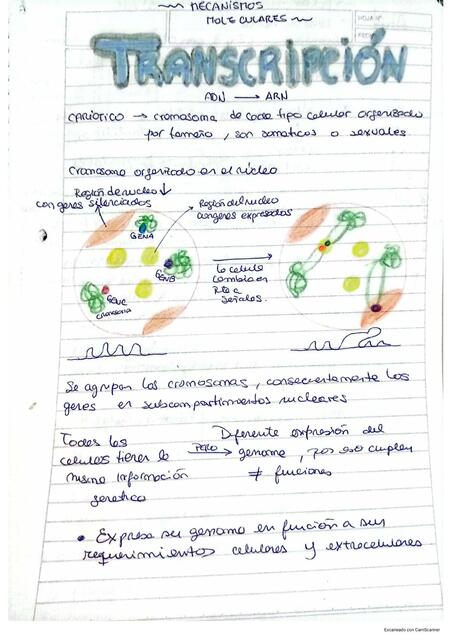 MECANISMOS
MOLECULARES
HOJA Nº
FECHA
TRANSCRIPCIÓN
ADN → ARN
CARIOTICO → cromosoma de cada tipo celular organizado
por tamaño, son somáticos o sexuales
Cromosoma organizado en el núcleo
Región de nucleo ↓
con genes silenciados
Región del nucleo
con genes expresados
GEN A
GEN B
GEN C
cromosoma
la celula
cambia en
rta a
señales.
Se agrupan los cromosomas, consecuentemente los
genes en subcompartimentos nucleares
Todas las
celulas tienen la
misma información
genetica
PERO →
Diferente expresión del
genoma, por eso cumplen
≠ funciones
• Expresa su genoma en función a sus
requerimientos celulares y extrocelulares
Escaneado con CamScanner